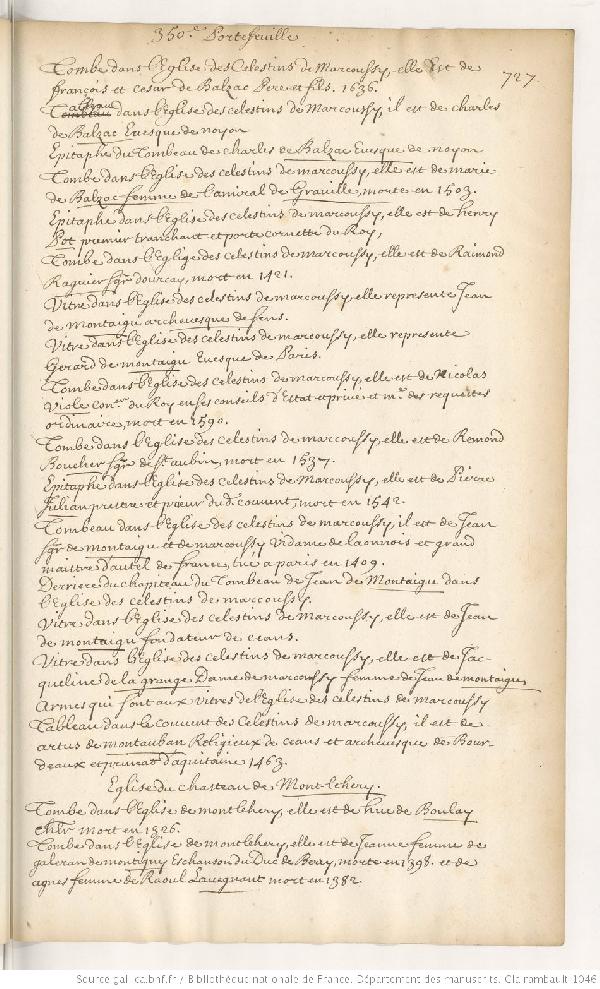 350.e Portefeuille
727.
Tombe dans l'Eglise des Celestins de Marcoussy, elle Est de
françois et cesar de Balzac Pere et fils. 1636.
Tableau dans l'eglise des celestins de Marcoussy, il est de charles
de Balzac Evesque de noyon
Epitaphe du Tombeau de charles de Balzac Evesque de noyon
Tombe dans l'Eglise des celestins de marcoussy, elle est de marie
de Balzac femme de l'amiral de Graville, morte en 1503.
Epitaphe dans l'Eglise des celestins de marcoussy, elle est de henry
Pot premier tranchant et porte cornette du Roy,
Tombe dans l'Eglige des celestins de marcoussy, elle est de Raimond
Raguier sgr. dourcay, mort en 1421.
Vitre dans l'Eglise des celestins de marcoussy, elle represente Jean
de Montaigu archevesque de sens.
Vitre dans l'Eglise des celestins de marcoussy, elle represente
Gerard de montaigu Evesque de Paris.
Tombe dans l'Eglise des Celestins de marcoussy, elle est de Nicolas
Viole con.er du Roy en ses conseils d'Estat et privé et m.e des requestes
ordinaire, mort en 1590.
Tombe dans l'Eglise des Celestins de marcoussy, elle est de Remond
Boucher sgr. de St. aubin, mort en 1537.
Epitaphe dans l'Eglise des celestins de Marcoussy, elle est de Pierre
Julian prestre et prieur du d. couvent, mort en 1542.
Tombeau dans l'Eglise des celestins de marcoussy, il est de Jean
sgr. de montaigu et de marcoussy Vidame de laonnois et grand
maistre d'autel de france, tué a paris en 1409.
Derriere du chapiteau du Tombeau de Jean de Montaigu dans
l'Eglise des celestins de marcoussy.
Vitre dans l'Eglise des celestins de Marcoussy, elle est de Jean
de montaigu fondateur de ceans.
Vitre dans l'Eglise des celestins de marcoussy, elle est de Jac-
queline de la grange Dame de marcoussy femme de Jean de montaigu
Armes qui sont aux vitres de l'Eglise des celestins de marcoussy
Tableau dans le couvent des Celestins de marcoussy, il est de
artus de montauban Religieux de ceans et archevesque de Bour-
deaux et primat d'aquitaine 1463.
Eglise du chasteau de Mont-lehery.
Tombe dans l'Eglise de montlehery, elle est de hue de Boulay
chlr. mort en 1326.
Tombe dans l'Eglise de montlehery, elle est de Jeanne femme de
galeran de montigny Eschanson du Duc de Bery, morte en 1398. et de
agnes femme de Raoul mort en 1382.
Source gallica.bnf.fr / Bibliothèque nationale de France. Département des manuscrits. Clairambault 1046